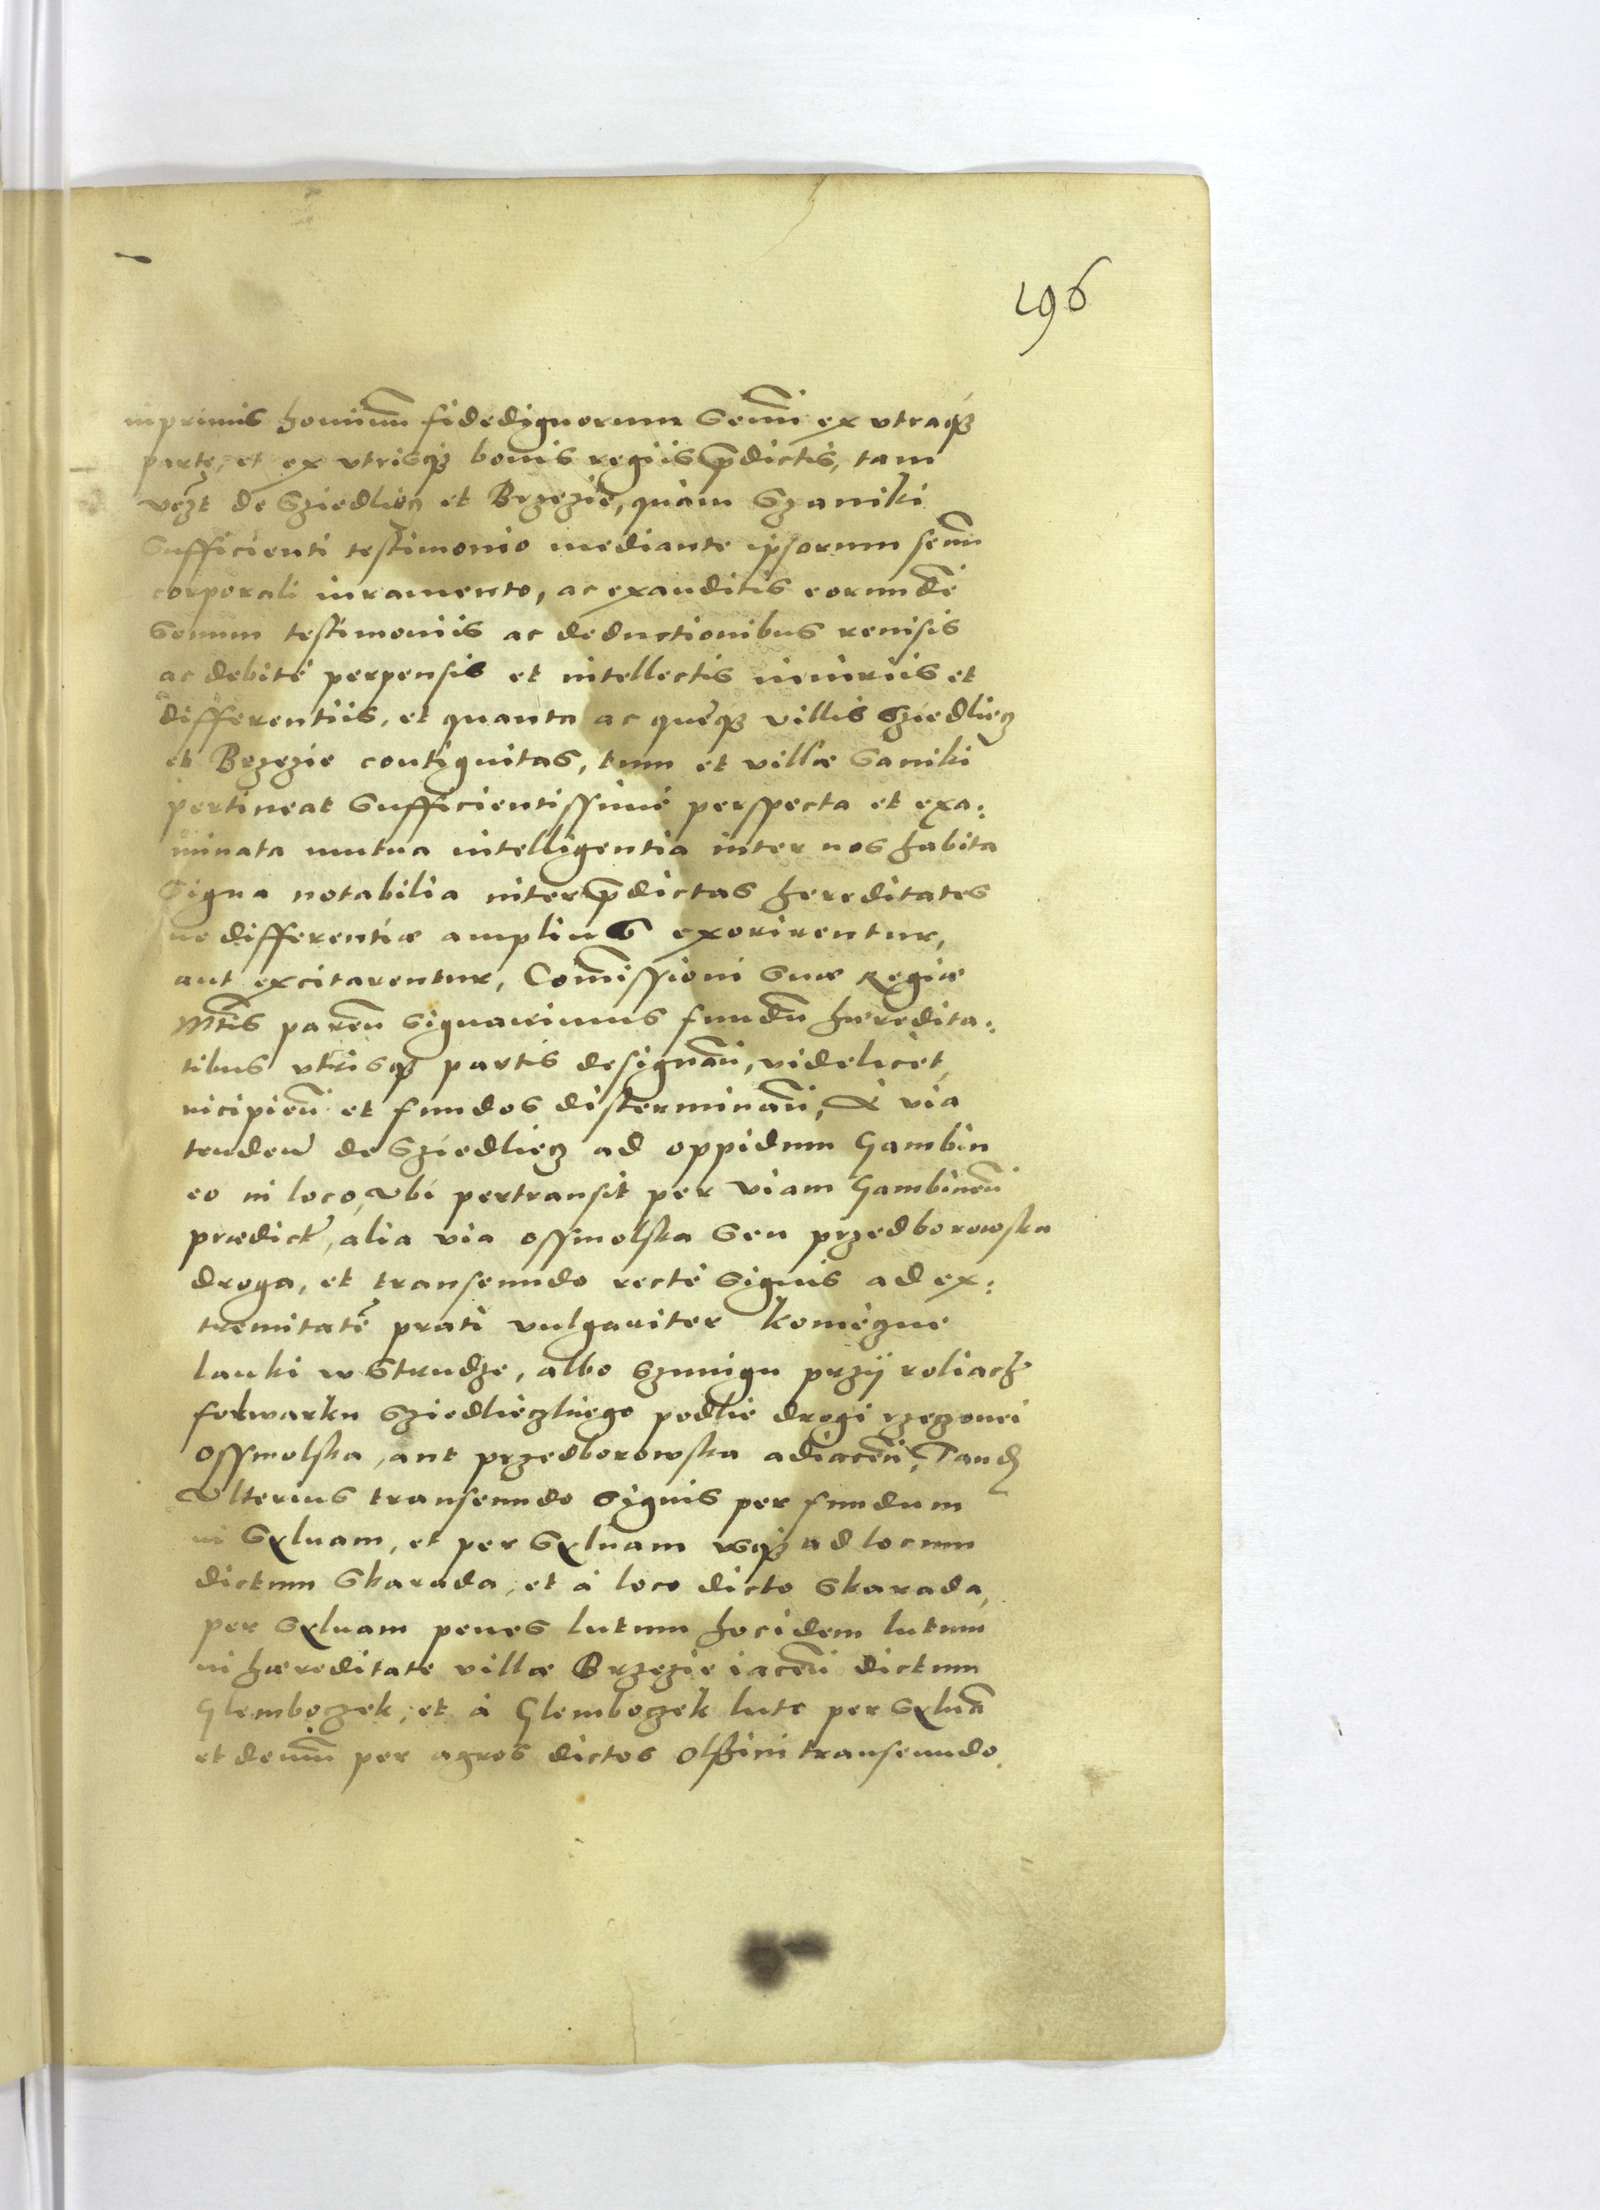 196
inprimis hominum fidedignorum Senum ex vtraqꝫ
parte, et ex vtrisqꝫ bonis regiis p̄dictis, tam
vczt de Sziedliecz et Brzezie, quàm Szaniki
Sufficienti testimonio mediante ipsorum senum
corporali iuramento, ac exauditis eorundē
Senum testimoniis ac deductionibus reuisis
ac debitè perpensis et intellectis iniuriis et
differentiis, et quanta ac queqꝫ villis Sziedliecz
et Brzezie contiguitas, tum et villæ Saniki
pertineat Sufficientissimè perspecta et exa:
minata mutua intelligentia inter nos habita
Signa notabilia inter p̄dictas hereditates
ne differentiæ amplius exorirentur,
aut excitarentur, Com̄issioni Suæ Regiæ
Mt̄is paren̄ signauimus fundū hæredita:
tibus vtrisqꝫ partis designan̄, videlicet,
incipien̄ et fundos disterminan̄, à via
tenden̄ de Sziedliecz ad oppidum Gambin
eo in loco, vbi pertransit per viam Gambinen̄
prædict, alia via Ossmolska seu przedborowska
droga, et transeundo rectè signis ad ex:
tremitatē prati vulgariter Komiezne
lauki w Strudze, albo Szmigu przÿ roliach
folwarku Sziedlieczkiego podlie drogi rzeczonei
Ossmolska, aut przedborowska adiacen̄, Tand
Vlterius transeundo signis per fundum
in Syluam, et per Syluam vsqꝫ ad locum
dictum Skarada, et à loco dicto Skarada,
per Syluam penes lutum hocidem lutum
in hæreditate villæ Brzezie iacen̄ dictum
Glemboczek, et à Glemboczek luto per Syluā
et demū per agros dictos Olssini transeundo.